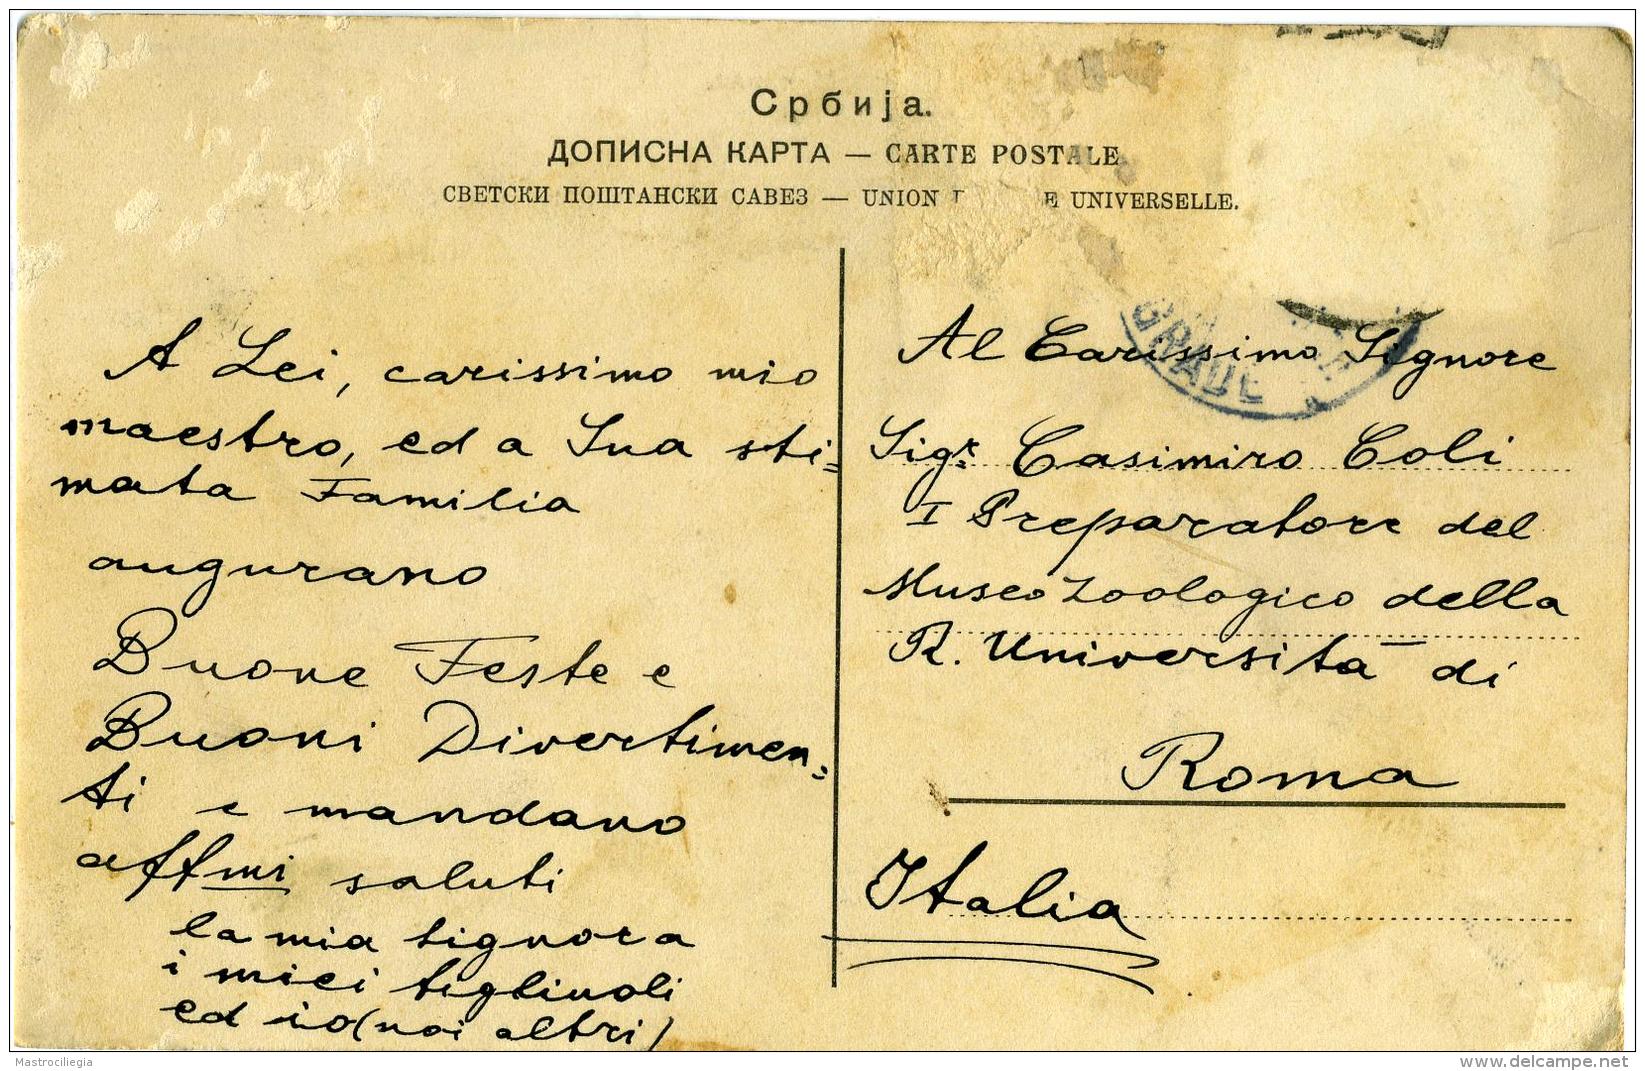 Србија.
ДОПИСНА КАРТА — CARTE POSTALE
СВЕТСКИ ПОШТАНСКИ САВЕЗ — UNION E UNIVERSELLE.
A Lei, carissimo mio
maestro, ed a Sua sti=
mata Familia
augurano
Buone Feste e
Buoni Divertimen=
ti e mandano
affmi saluti
la mia signora
i miei figliuoli
ed io (noi altri)
GRADE
Al Carissimo Signore
Sigr. Casimiro Coli
I Preparatore del
Museo Zoologico della
R. Università di
Roma
Italia
Mastrociliegia
www.delcampe.net